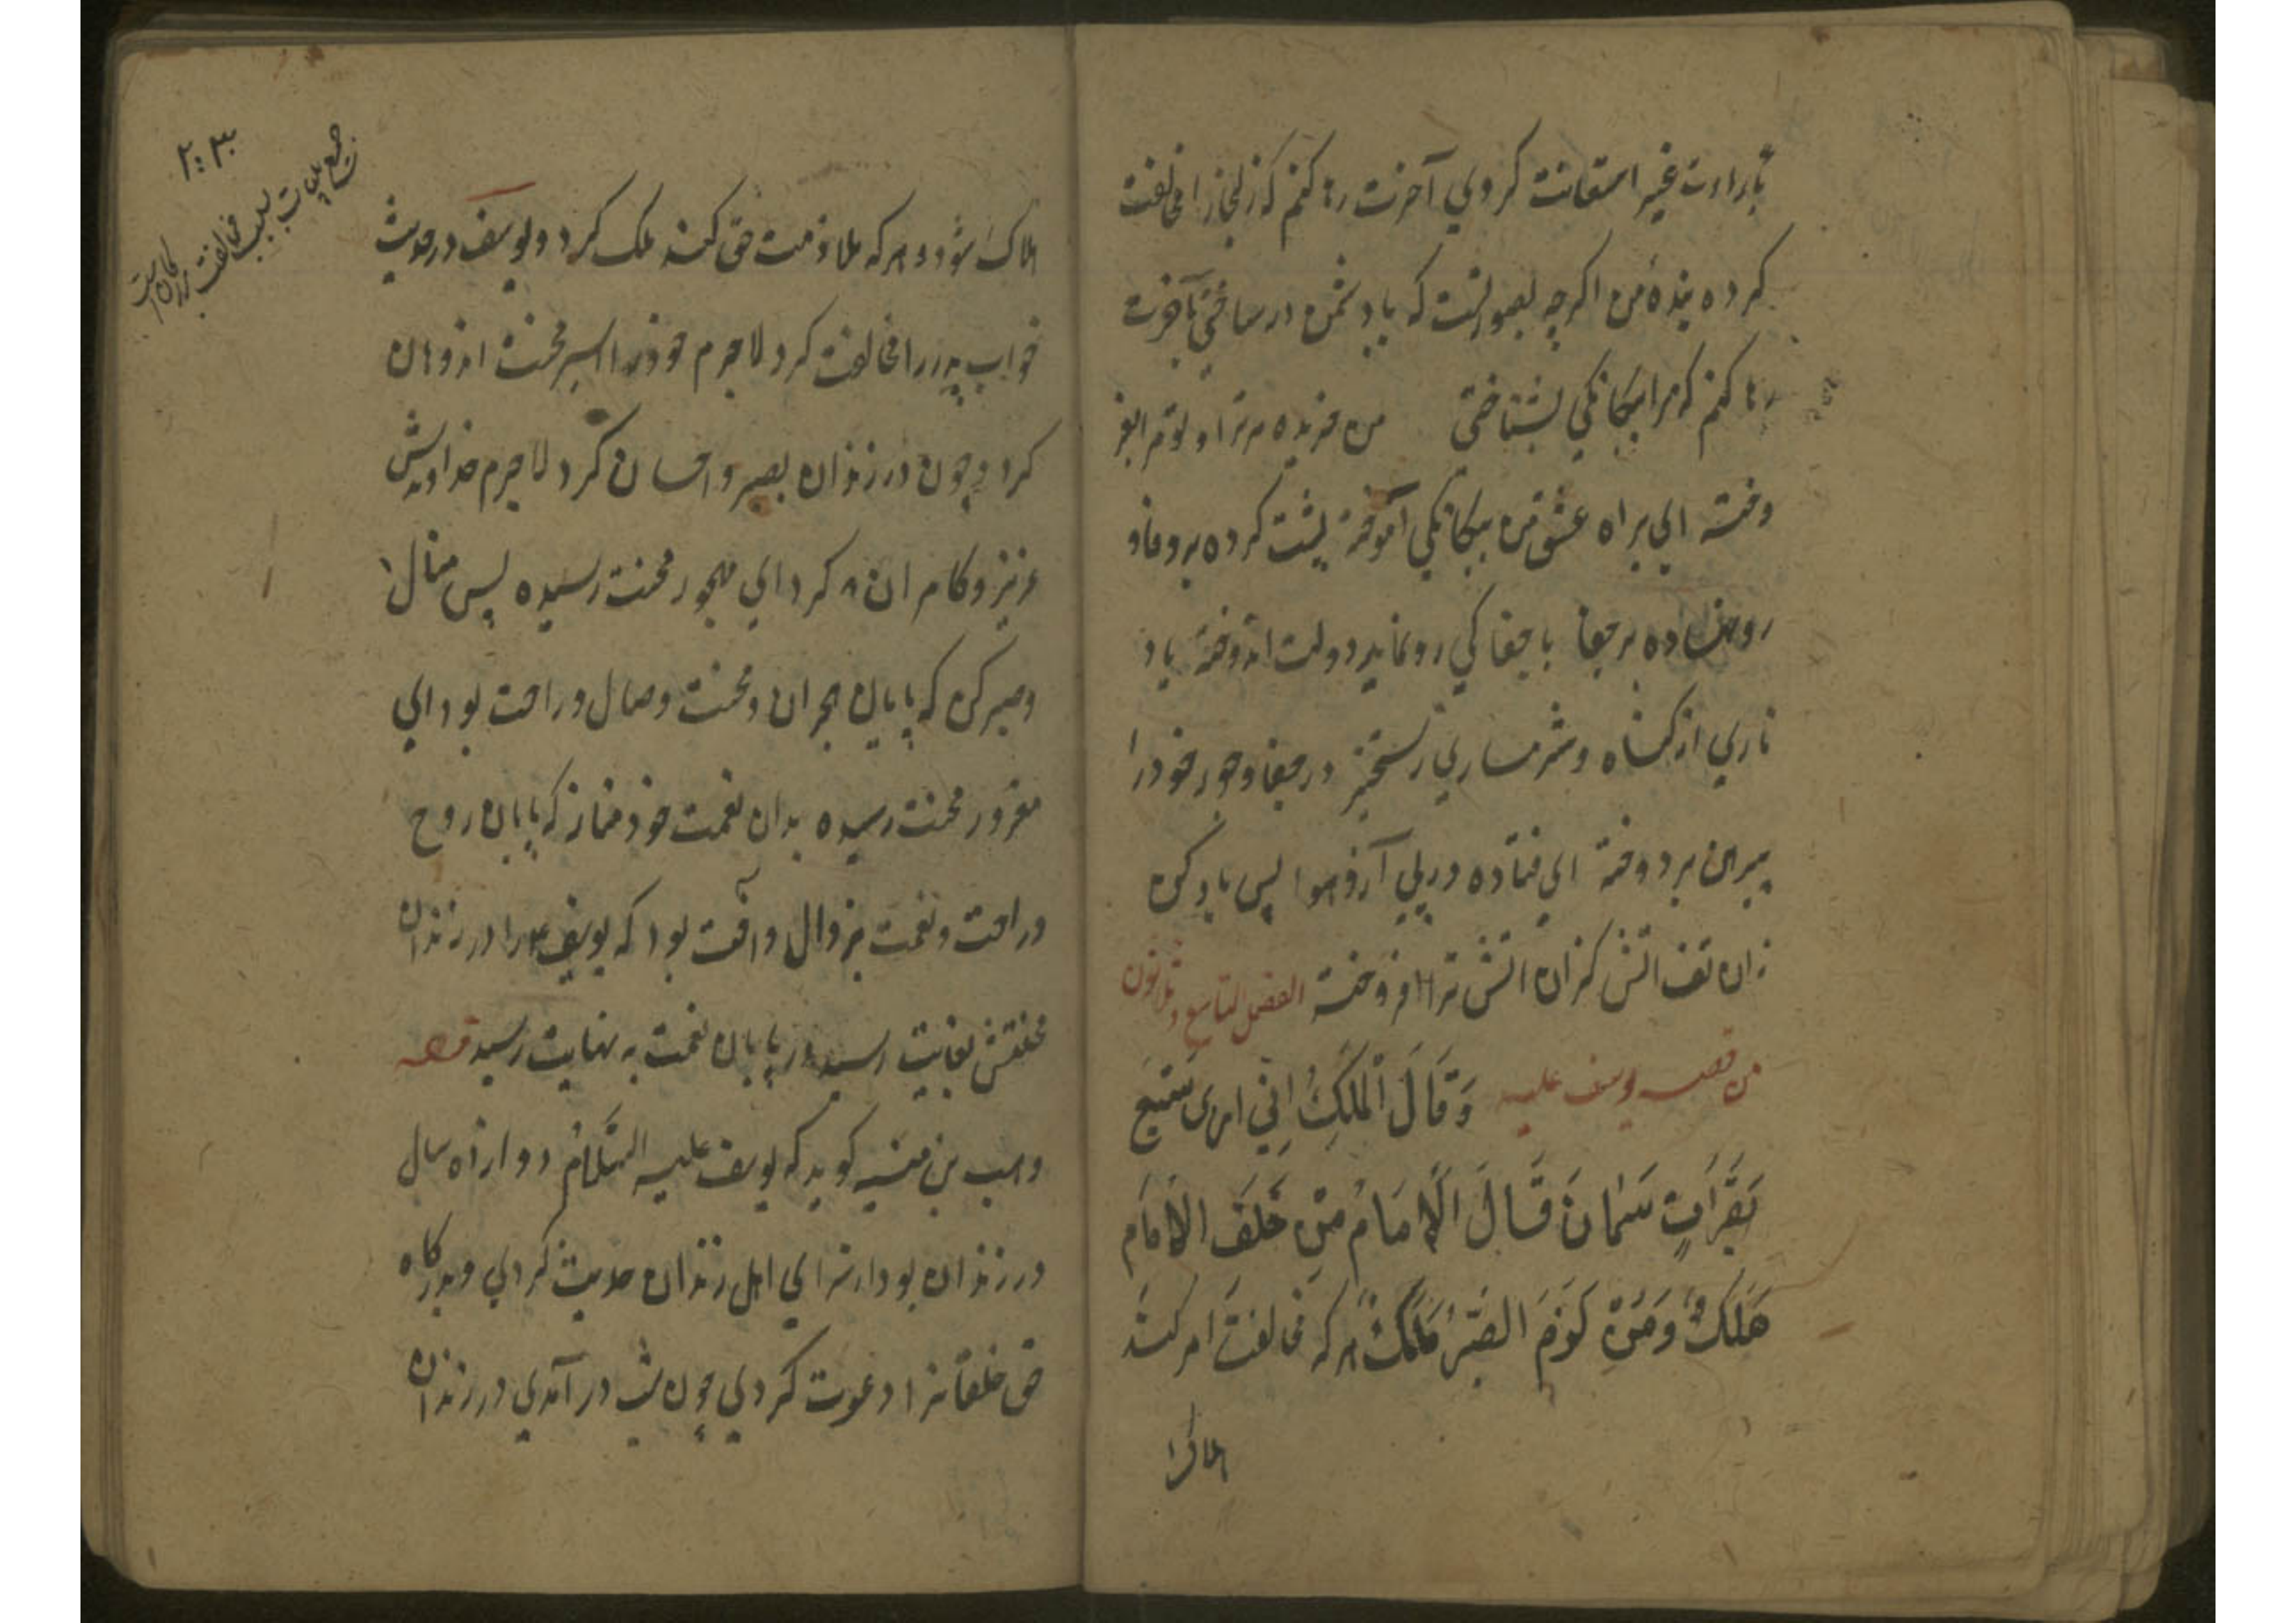 بارادت غیر استعانت کردی آخرت رها کنم که زلیخا را مخالفت
کرده بندهٔ من اگرچه بصورتست که با دشمن در ساختی بآخرت
رها کنم که مرا بیکانکی بشناختی من خریده مر ترا و تو مرا بفر
وخته ای براه عشق من بیکانکی آموخته پشت کرده بر وفا و
رو نهاده بر جفا با جفا کی رو نماید دولت اندوخته یاد
ناری از کناه و شرمساری رستخیز در جفا و جور خود را
پیرهن بر دوخته ای فتاده در پی آرزو هوا پس یاد کن
زان تف اتش کزان اتش ترا افروخته الفصل التاسع و ثلاثون
من قصه یوسف علیه وَقَالَ الْمَلِكُ اِنّي اری سَبْعَ
بَقَرَاتٍ سَمَانَ قَالَ الْاِمَامُ مَنْ خَلَفَ الاِمَامَ
هَلَكَ وَمَنْ لَزِمَ الصَبْرَ مَلَكَ هر که مخالفت امر کند
هلاک
هلاک شود و هر که ملازمت حق کند ملک کردد و یوسف در حدیث
خواب پدر را مخالفت کرد لاجرم خود را اسیر محنت اندوهان
کرد و چون در زندان بصبر و احسان کرد لاجرم خداوندش
عزیز و کامران کرد ای مهجور محنت رسیده پس منال
و صبر کن که پایان هجران و محنت وصال و راحت بود ای
مغرور محنت رسیده بدان نعمت خود مناز که پایان روح
و راحت و نعمت بزوال و آفت بود که یوسف را در زندان
محنتش بغایت رسید و پایان نعمت به نهایت رسید قصه
وهب بن منبه کوید که یوسف علیه السّلامُ دوازده سال
در زندان بود از برای اهل زندان حدیث کردی و بدرکاه
حق خلقانرا دعوت کردی چون شب در آمدی در زندان
۲۰۳
بسبب مخالفت